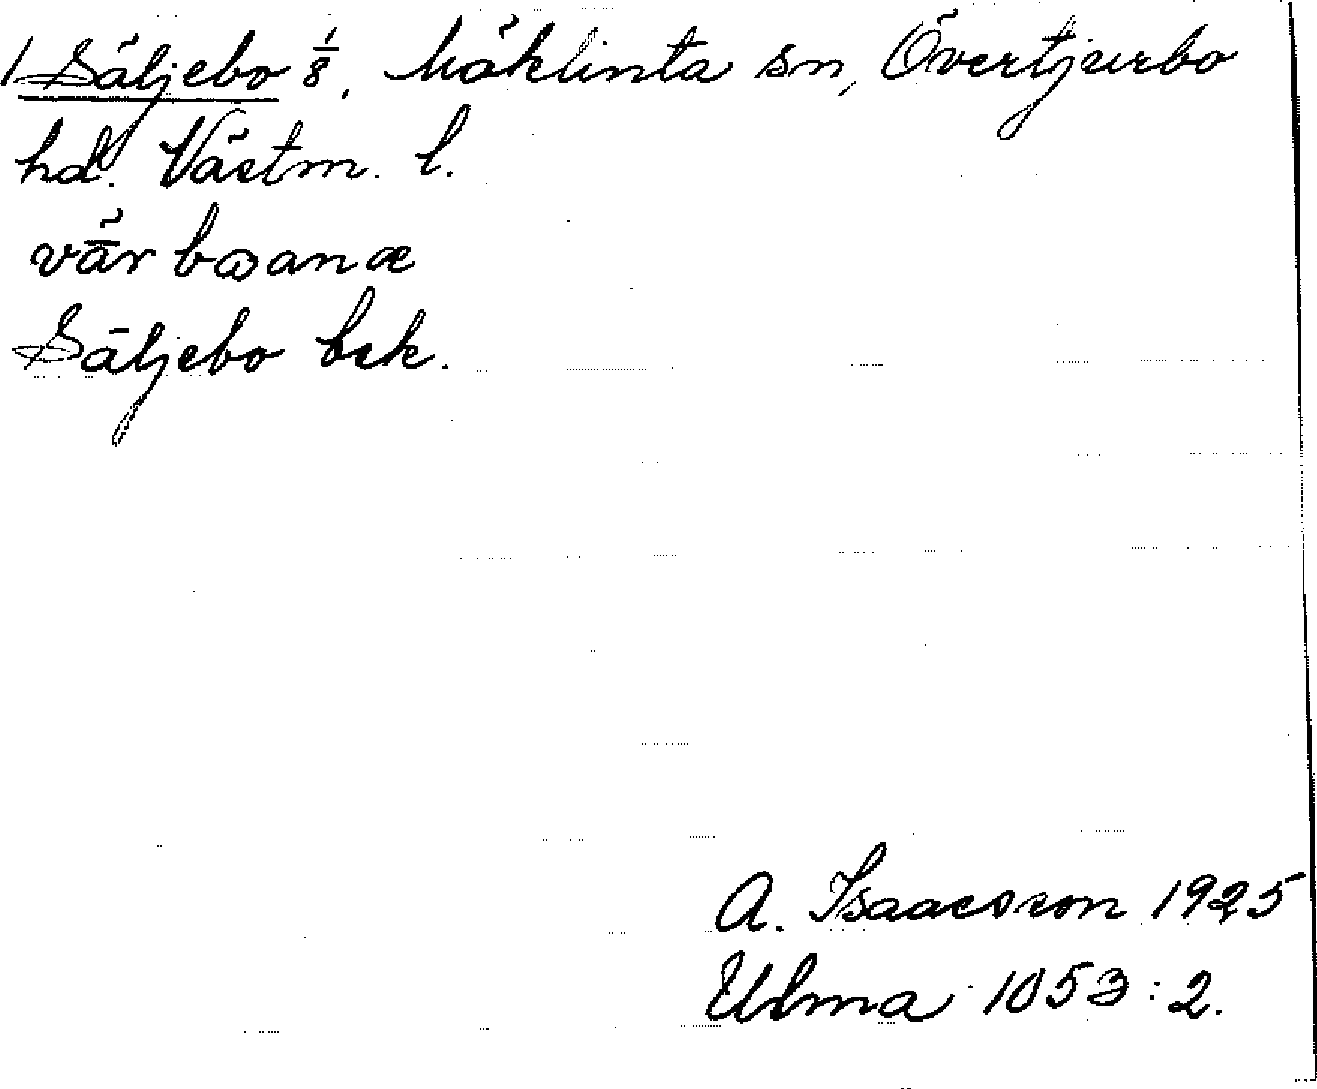 1 Säljebo 1/8, Möklinta sn, Övertjurbo
hd. Västm. l.
Säljebo bsk.
A. Isaacsson 1925
Ulma 1053:2.